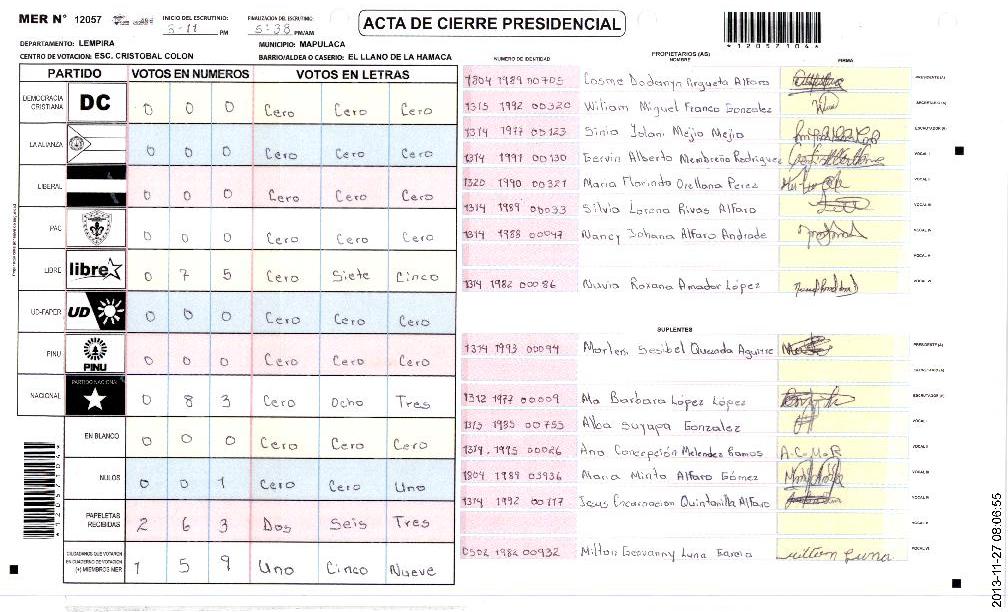 MER N° 12057
INICIO DEL ESCRUTINIO: 5-11 PM
FINALIZACIÓN DEL ESCRUTINIO: 5:38 PM/AM
ACTA DE CIERRE PRESIDENCIAL
*1205710 4*
DEPARTAMENTO: LEMPIRA
MUNICIPIO: MAPULACA
CENTRO DE VOTACION: ESC. CRISTOBAL COLON
BARRIO/ALDEA O CASERIO: EL LLANO DE LA HAMACA
PARTIDO VOTOS EN NUMEROS VOTOS EN LETRAS
DEMOCRACIA CRISTIANA DC 0 0 0 Cero Cero Cero
LA ALIANZA 0 0 0 Cero Cero Cero
LIBERAL 0 0 0 Cero Cero Cero
PAC 0 0 0 Cero Cero Cero
LIBRE libre 0 7 5 Cero Siete Cinco
UD-FAPER UD 0 0 0 Cero Cero Cero
PINU PINU 0 0 0 Cero Cero Cero
NACIONAL PARTIDO NACIONAL 0 8 3 Cero Ocho Tres
EN BLANCO 0 0 0 Cero Cero Cero
NULOS 0 0 1 Cero Cero Uno
PAPELETAS RECIBIDAS 2 6 3 Dos Seis Tres
CIUDADANOS QUE VOTARON EN CUADERNO DE VOTACION (+) MIEMBROS MER 1 5 9 Uno Cinco Nueve
PROPIETARIOS (AS)
NUMERO DE IDENTIDAD NOMBRE FIRMA
1804 1989 00705 Cosme Dodanyn Argueta Alfaro PRESIDENTE (A)
1315 1992 00320 Wiliam Miguel Franco Gonzalez SECRETARIO (A)
1314 1977 00123 Sinia Yolani Mejia Mejia ESCRUTADOR (A)
1314 1991 00130 Gervin Alberto Membreño Rodriguez VOCAL I
1320 1990 00321 Maria Florinda Orellana Perez VOCAL II
1314 1989 00033 Silvia Lorena Rivas Alfaro VOCAL III
1314 1988 00047 Nancy Johana Alfaro Andrade VOCAL IV
VOCAL V
1314 1982 00086 Nuvia Roxana Amador López VOCAL VI
SUPLENTES
1314 1993 00094 Marleni Sesibel Quezada Aguirre PRESIDENTE (A)
SECRETARIO (A)
1312 1977 00009 Ma Barbara López López ESCRUTADOR (A)
1315 1985 00755 Alba Suyapa Gonzalez VOCAL I
1314 1975 00026 Ana Concepción Melendez Ramos A.C.M.R VOCAL II
1804 1989 03936 Maria Mirta Alfaro Gómez VOCAL III
1314 1992 00117 Jesus Encarnacion Quintanilla Alfaro VOCAL IV
VOCAL V
0502 1982 00932 Milton Geovanny Luna Garcia Milton Luna VOCAL VI
2013-11-27 08:06:55